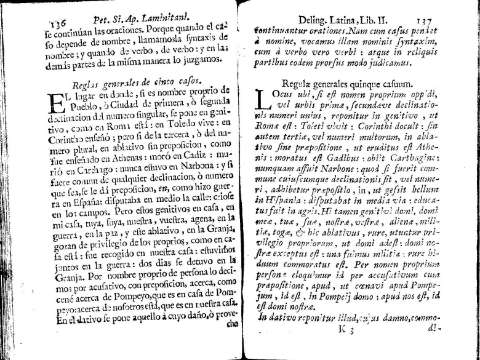 136 Pet. Si. Ap. Laminitani.
se continuan las oraciones. Porque quando el ca-
so depende de nombre, llamamosla syntaxis de
nombre; y quando de verbo, de verbo; y en las
demás partes de la misma manera lo juzgamos.
Reglas generales de cinco casos.
EL lugar en donde, si es nombre proprio de
Pueblo, ò Ciudad de primera, ò segunda
declinacion del numero singular, se pone en geni-
tivo, como en Roma està: en Toledo vive: en
Corintho enseñò; pero si de la tercera, ò del nu-
mero plural, en ablativo sin preposicion, como
fue enseñado en Athenas: morò en Cadiz: mu-
riò en Cartago: nunca estuvo en Narbona: y si
fuere comun de qualquier declinacion, ò numero
que sea, se le dà preposicion, en, como hizo guer-
ra en España: disputaba en medio la calle: criose
en los campos. Pero estos genitivos en casa, en
mi casa, tuya, suya, nuestra, vuestra, agena, en la
guerra, en la paz, y este ablativo, en la Granja,
gozan de privilegio de los proprios, como en ca-
sa està: fue recogido en nuestra casa: estuvimos
juntos en la guerra: dos dias se detuvo en la
Granja. Por nombre proprio de persona lo deci-
mos por acusativo, con preposicion, acerca, como
cenè acerca de Pompeyo, que es en casa de Pom-
peyo: acerca de nosotros està, que es en nuestra casa.
En el dativo se pone aquello à cuyo daño, ò prove-
cho
Deling. Latina, Lib. II. 137
continuantur orationes. Nam cum casus pendet
à nomine, vocamus illam nominis syntaxim,
cum à verbo vero verbi: atque in reliquis
partibus eodem prorsus modo judicamus.
Regula generales quinque casuum.
LOcus ubi, si est nomen proprium oppidi,
vel urbis primæ, secundæve declinatio-
nis numeri unius, reponitur in genitivo, ut
Romæ est: Toleti vivit: Corinthi docuit: sin
autem tertiæ, vel numeri multorum, in abla-
tivo sine præpositione, ut eruditus est Athe-
nis: moratus est Gadibus: obiit Carthagine:
numquam affuit Narbone: quod si fuerit com-
mune cuiuscumque declinationis sit, vel nume-
ri, adhibetur præpositio, in, ut gessit bellum
in Hispania: disputabat in media via: educa-
tus fuit in agris. Hi tamen genitivi domi, domi
meæ, tuæ, suæ, nostræ, vestræ, alienæ, mili-
tiæ, togæ, & hic ablativus, rure, utuntur pri-
vilegio propriorum, ut domi adest: domi no-
stræ exceptus est: una fuimus militiæ: rure bi-
duum commoratus est. Per nomen proprium
personæ eloquimur id per accusativum cum
præpositione, apud, ut cœnavi apud Pompe-
jum, id est, in Pompeij domo: apud nos est, id est
domi nostræ.
In dativo reponitur illud, cujus damno, commo-
K 3 di-